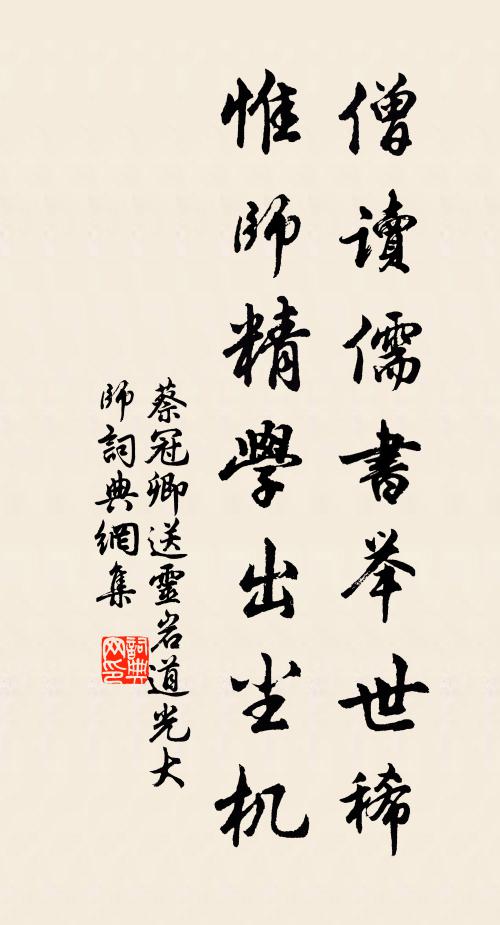 僧讀儒書举世稀
惟師精學出尘机
蔡冠卿送靈岩道光大
師詞典網集
詞典网印